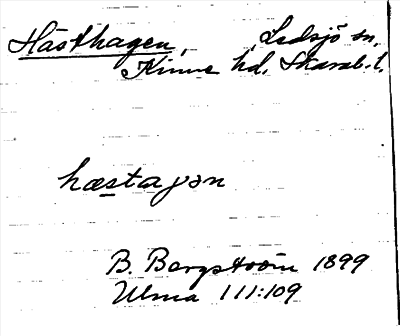 Hästhagen, Ledsjö sn,
Kinne hd. Skarab. l.
hæstaɡən
B. Bergström 1899
Ulma 111:109